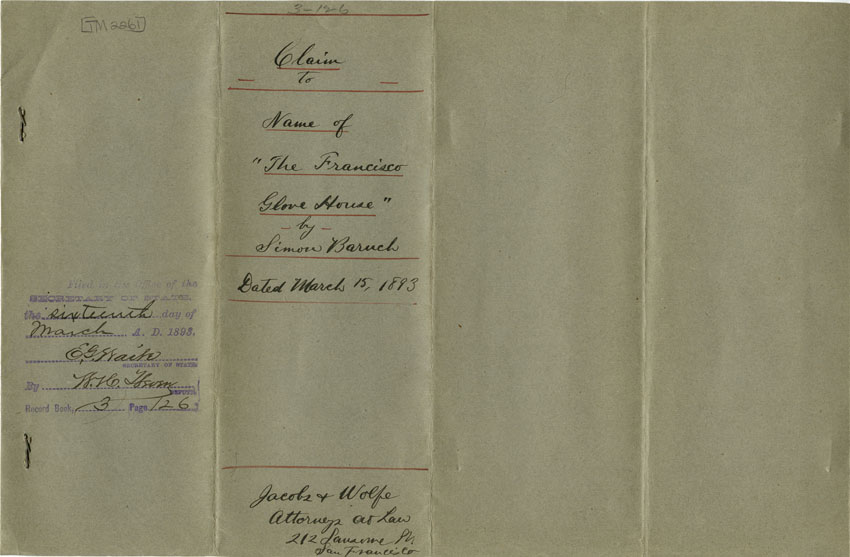 TM2261
Filed in the Office of the
SECRETARY OF STATE,
the sixteenth day of
March A. D. 1893.
E.G. Waite
SECRETARY OF STATE
By W.H.
DEPUTY
Record Book, 3 Page 126
3-126
Claim
to
Name of
"The Francisco
Glove House"
- by -
Simon Baruch
Dated March 15, 1893
Jacobs & Wolfe
Attorneys at Law
212 Sansome St
San Francisco